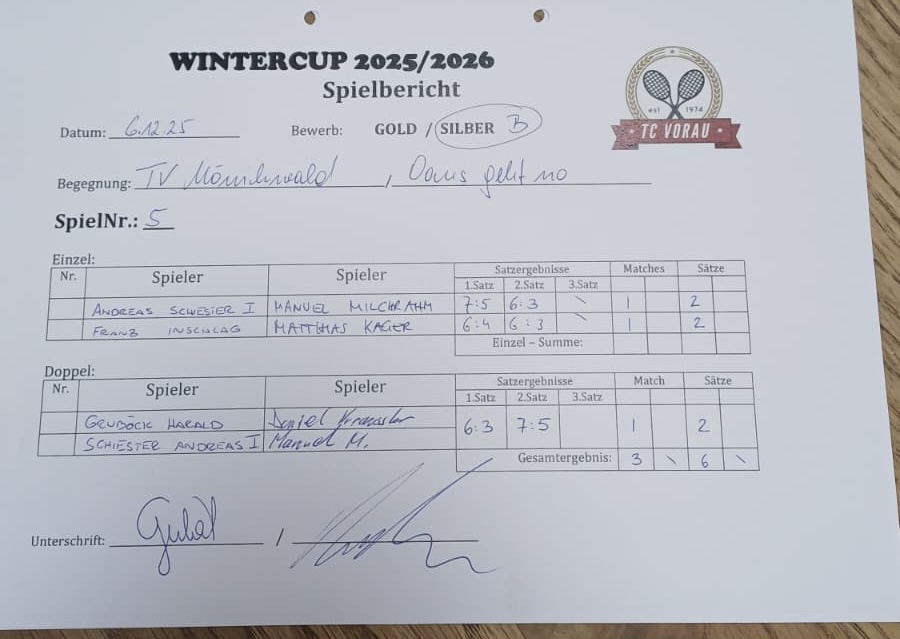 WINTERCUP 2025/2026
Spielbericht
est 1974
TC VORAU
Datum: 6.12.25 Bewerb: GOLD / SILBER B
Begegnung: TV Mönichwald / Oans geht no
SpielNr.: 5
Einzel:
Nr. Spieler Spieler Satzergebnisse Matches Sätze
1.Satz 2.Satz 3.Satz
ANDREAS SCHIESTER I MANUEL MILCHRAHM 7:5 6:3 \ 1 2
FRANZ INSCHLAG MATTHIAS KAGER 6:4 6:3 \ 1 2
Einzel – Summe:
Doppel:
Nr. Spieler Spieler Satzergebnisse Match Sätze
1.Satz 2.Satz 3.Satz
GRUBÖCK HARALD Daniel 6:3 7:5 1 2
SCHIESTER ANDREAS I Manuel M.
Gesamtergebnis: 3 \ 6 \
Unterschrift: /